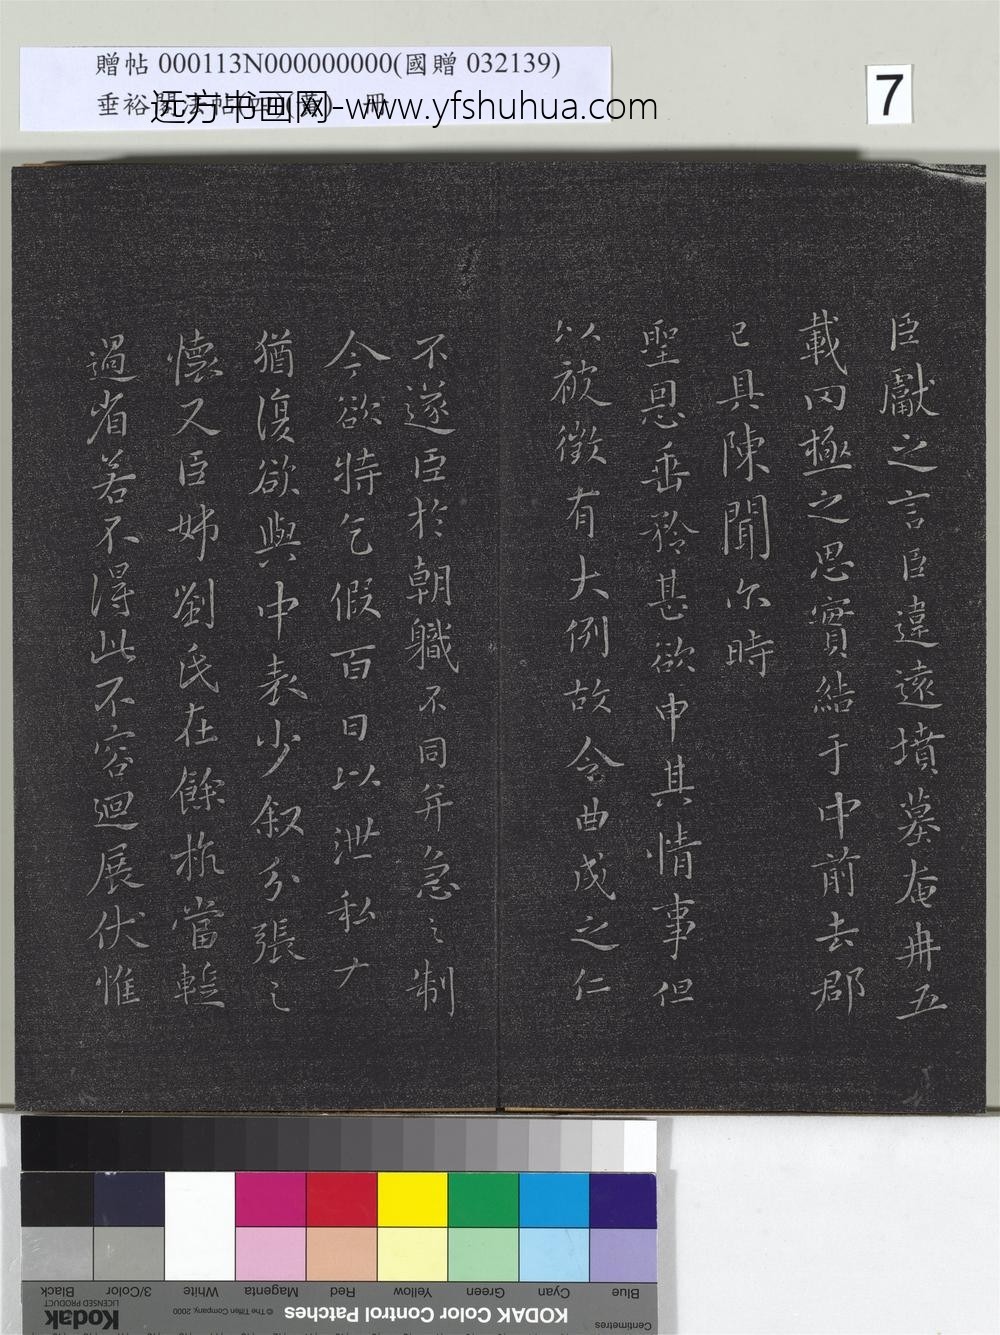 贈帖 000113N000000000(國贈 032139)
垂裕
远方书画网-www.yfshuhua.com
7
臣獻之言臣違遠墳墓奄冉五
載罔極之思實結于中前去郡
已具陳聞尔時
聖恩垂矜甚欲申其情事但
以被徵有大例故令曲成之仁
不遂臣於朝職不同并急之制
今欲特乞假百日以泄私
猶復欲與中表少叙分張之
懷又臣姊劉氏在餘杭當蹔
過省若不得此不容迴展伏惟
Blue
Cyan
Green
Yellow
Red
Magenta
White
3/Color
Black
Centimetres
KODAK Color Control Patches
© The Tiffen Company, 2000
Kodak
LICENSED PRODUCT